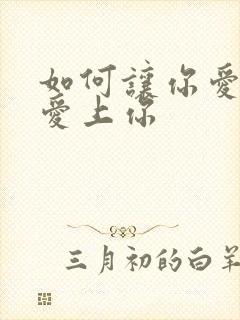 如何讓你愛
愛上你
三月初的白羊